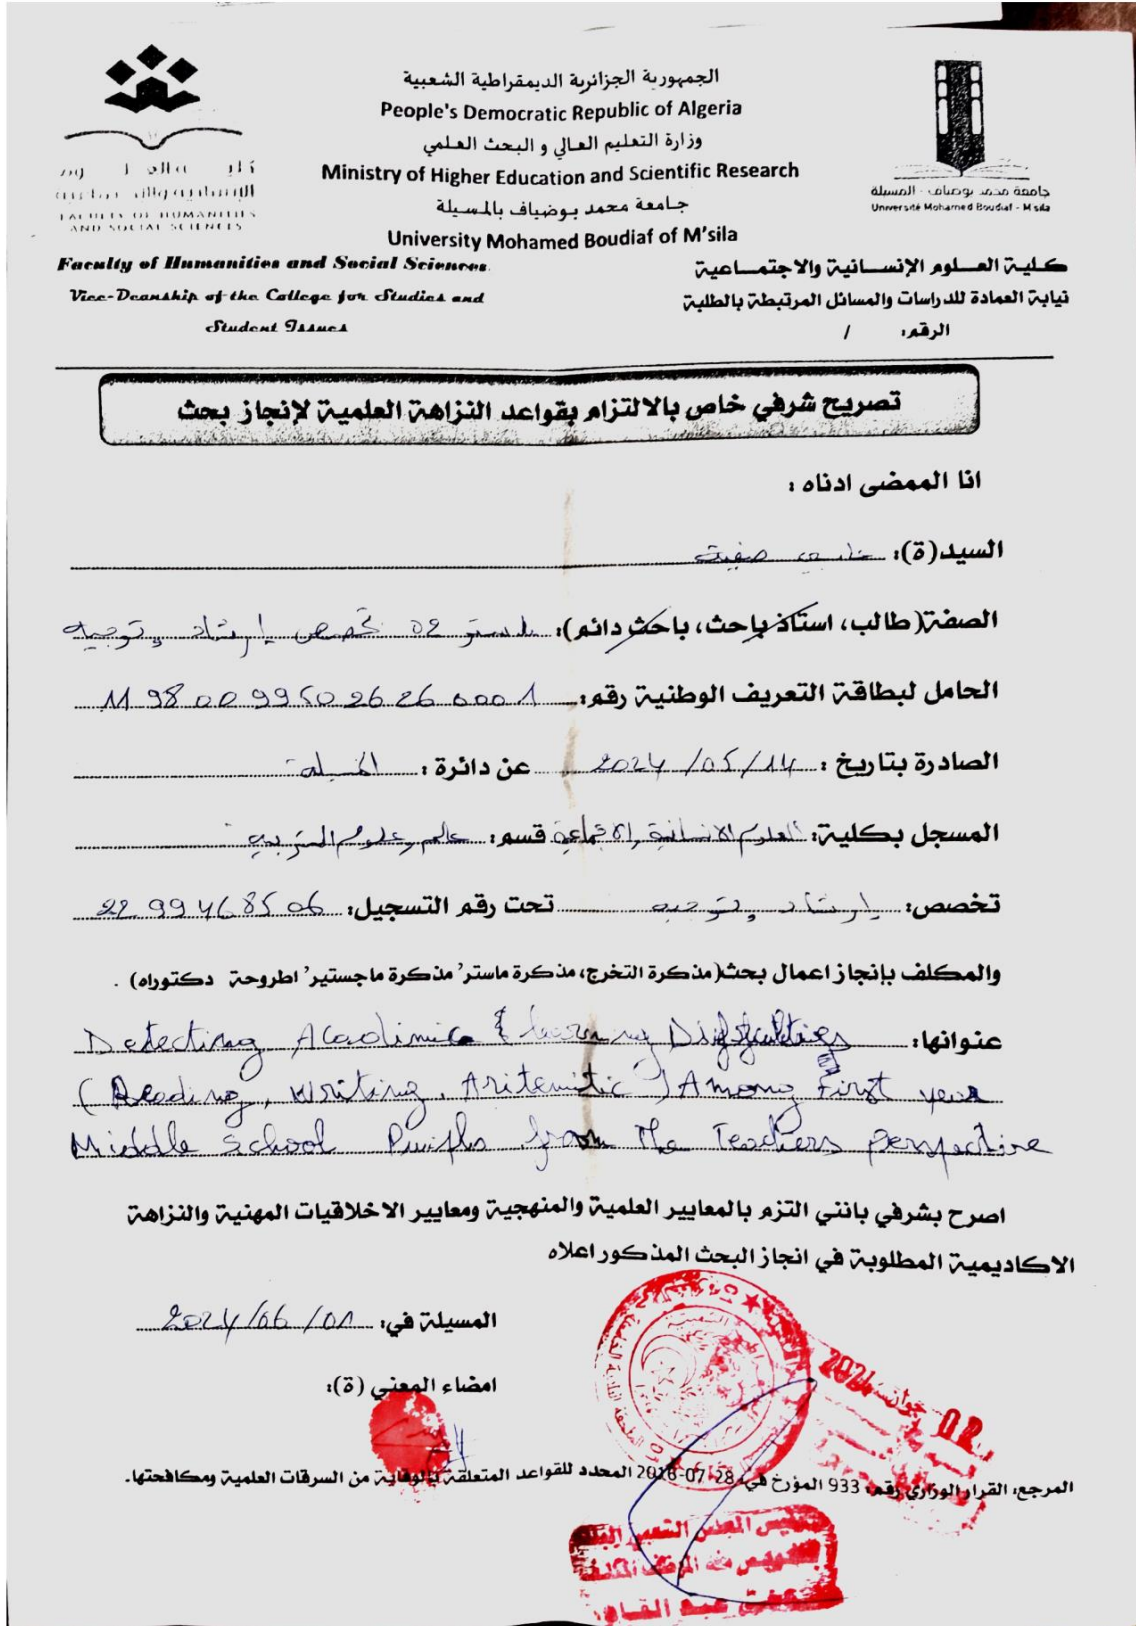 الجمهورية الجزائرية الديمقراطية الشعبية
People's Democratic Republic of Algeria
وزارة التعليم العالي و البحث العلمي
Ministry of Higher Education and Scientific Research
جامعة محمد بوضياف بالمسيلة
University Mohamed Boudiaf of M'sila
FACULTY OF HUMANITIES
AND SOCIAL SCIENCES
جامعة محمد بوضياف - المسيلة
Université Mohamed Boudiaf - M'sila
Faculty of Humanities and Social Sciences
Vice-Deanship of the College for Studies and
Student Issues
كلية العلوم الإنسانية والاجتماعية
نيابة العمادة للدراسات والمسائل المرتبطة بالطلبة
الرقم: /
تصريح شرفي خاص بالالتزام بقواعد النزاهة العلمية لإنجاز بحث
انا الممضى ادناه :
السيد(ة): صفية
الصفة(طالب، استاذ باحث، باحث دائم): ماستر 02 تخصص إرشاد وتوجيه
الحامل لبطاقة التعريف الوطنية رقم: 119800995026260001
الصادرة بتاريخ : 2024/05/14 عن دائرة : المسيلة
المسجل بكلية: العلوم الانسانية والاجتماعية قسم: علم وعلوم التربية
تخصص: إرشاد وتوجيه تحت رقم التسجيل: 2299468506
والمكلف بإنجاز اعمال بحث(مذكرة التخرج، مذكرة ماستر' مذكرة ماجستير' اطروحة دكتوراه) .
عنوانها: Detecting Academic & learning Difficulties
(Reading, writing, Aritemitic) Among First year
Middle School Puipls from The Teachers perspective
اصرح بشرفي بانني التزم بالمعايير العلمية والمنهجية ومعايير الاخلاقيات المهنية والنزاهة
الاكاديمية المطلوبة في انجاز البحث المذكور اعلاه
المسيلة في: 2024/06/01
امضاء المعني (ة):
02 جوان 2024
المرجع: القرار الوزاري رقم: 933 المؤرخ في: 28-07-2016 المحدد للقواعد المتعلقة بالوقاية من السرقات العلمية ومكافحتها.
رئيس المجلس الشعبي البلدي